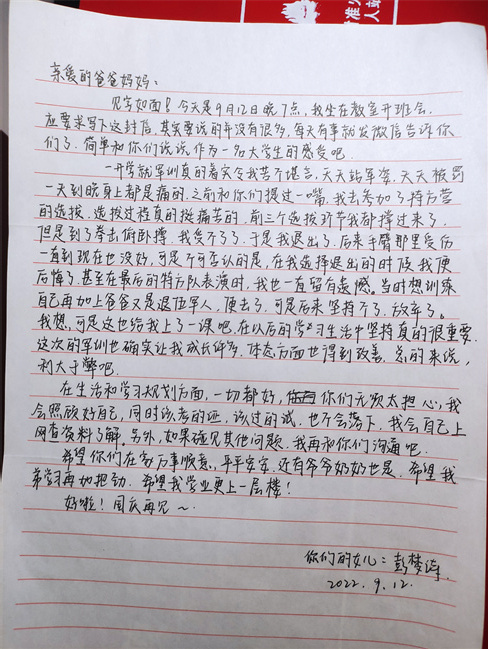 准
人站
亲爱的爸爸妈妈：
见字如面！今天是9月12日晚7点，我坐在教室开班会，
应要求写下这封信，其实要说的并没有很多，每天有事就发微信告诉你
们了，简单和你们说说，作为一名大学生的感受吧。
一开学就军训真的着实令我苦不堪言，天天站军姿，天天被罚
一天到晚身上都是痛的，之前和你们提过一嘴，我去参加了持方营
的选拔，选拔过程真的挺痛苦的，前三个选拔环节我都撑过来了，
但是到了拳击俯卧撑，我受不了了，于是我退出了，后来手臂那里受伤
一直到现在也没好，可是不可否认的是，在我选择退出的时候我便
后悔了，甚至在最后的特方队表演时，我也一直留有遗憾，当时想训练
自己再加上爸爸又是退伍军人，便去了，可是后来坚持不了，放弃了。
我想，可是这也给我上了一课吧，在以后的学习生活中坚持真的很重要，
这次的军训也确实让我成长许多，体态方面也得到改善，总的来说，
利大于弊吧。
在生活和学习规划方面，一切都好，你们无须太担心，我
会照顾好自己，同时该考的证，该过的试，也不会落下，我会自己上
网查资料了解，另外，如果碰见其他问题，我再和你们沟通吧。
希望你们在家万事顺意，平平安安，还有爷爷奶奶也是，希望我
弟学习再加把劲，希望我学业更上一层楼！
好啦！国庆再见～
你们的女儿：彭梦
2022.9.12.